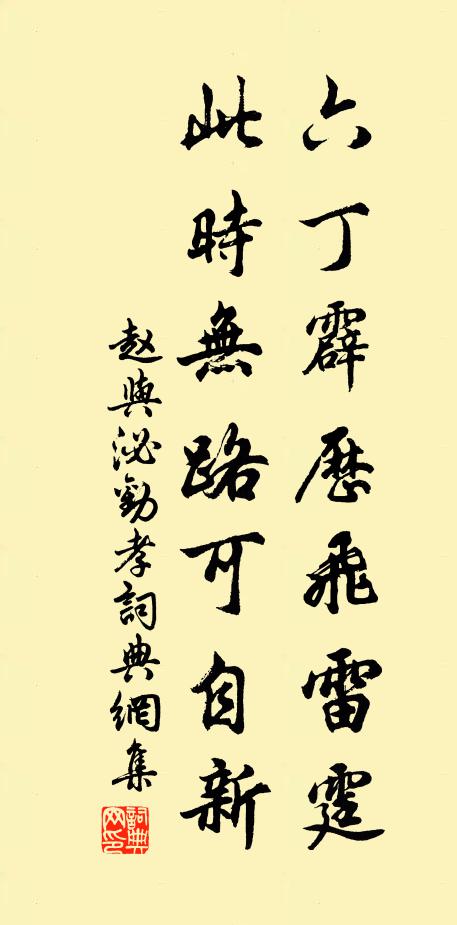 六丁霹歷飛雷霆
此時無路可自新
趙與泌勸孝詞典網集
詞典網印